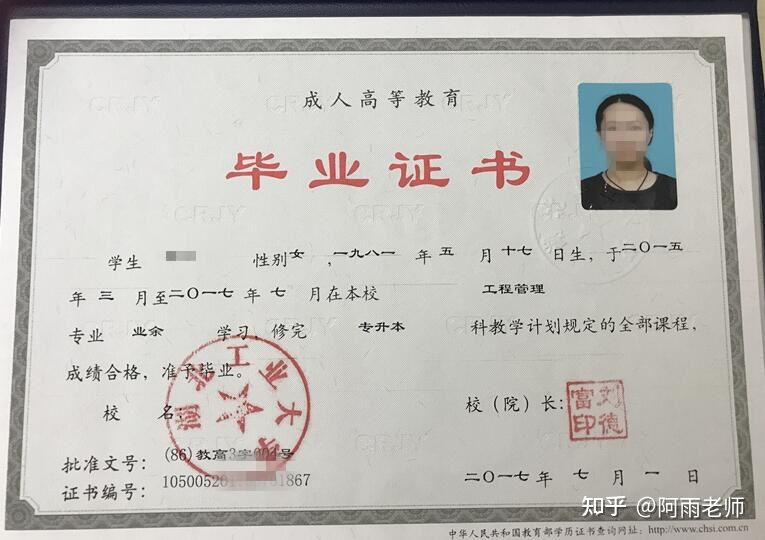 成人高等教育
毕业证书
学生 性别女,一九八一年五月十七日生,于二〇一五
年三月至二〇一七年七月在本校 工程管理
专业 业余 学习,修完 专升本 科教学计划规定的全部课程,
成绩合格,准予毕业。
湖北工业大学
校 名: 校(院)长:
刘德富印
批准文号: (86)教高3字004号
证书编号: 105005201 01867
二〇一七年七月一日
知乎 @阿雨老师
中华人民共和国教育部学历证书查询网址: http://www.chsi.com.cn
CRJY
CRJY
CRJY
CRJY
CRJY